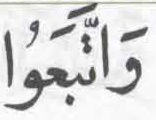 وَاتَّبَعُوا